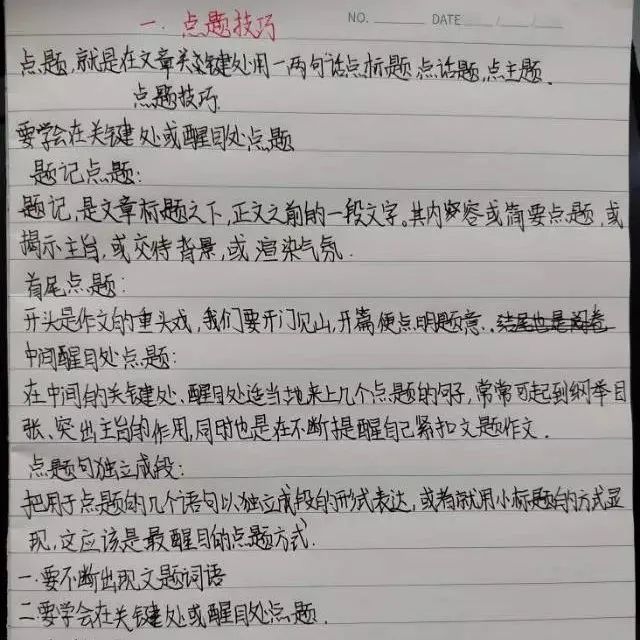 一.点题技巧
NO. DATE / /
点题,就是在文章关键处用一两句话点标题,点话题,点主题.
点题技巧
要学会在关键处或醒目处点题
题记点题:
题记,是文章标题之下,正文之前的一段文字。其内容或简要点题,或
揭示主旨,或交待背景,或渲染气氛.
首尾点题:
开头是作文的重头戏,我们要开门见山,开篇便点明题意.结尾也是阅卷
中间醒目处点题:
在中间的关键处、醒目处适当地来上几个点题的句子,常常可起到纲举目
张、突出主旨的作用,同时也是在不断提醒自己紧扣文题作文.
点题句独立成段:
把用于点题的几个语句以独立成段的形式表达,或者就用小标题的方式显
现,这应该是最醒目的点题方式.
一.要不断出现文题词语
二.要学会在关键处或醒目处点题.